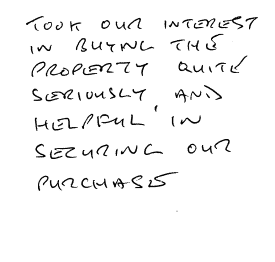 TOOK OUR INTEREST
IN BUYING THE
PROPERTY QUITE
SERIOUSLY, AND
HELPFUL IN
SECURING OUR
PURCHASE